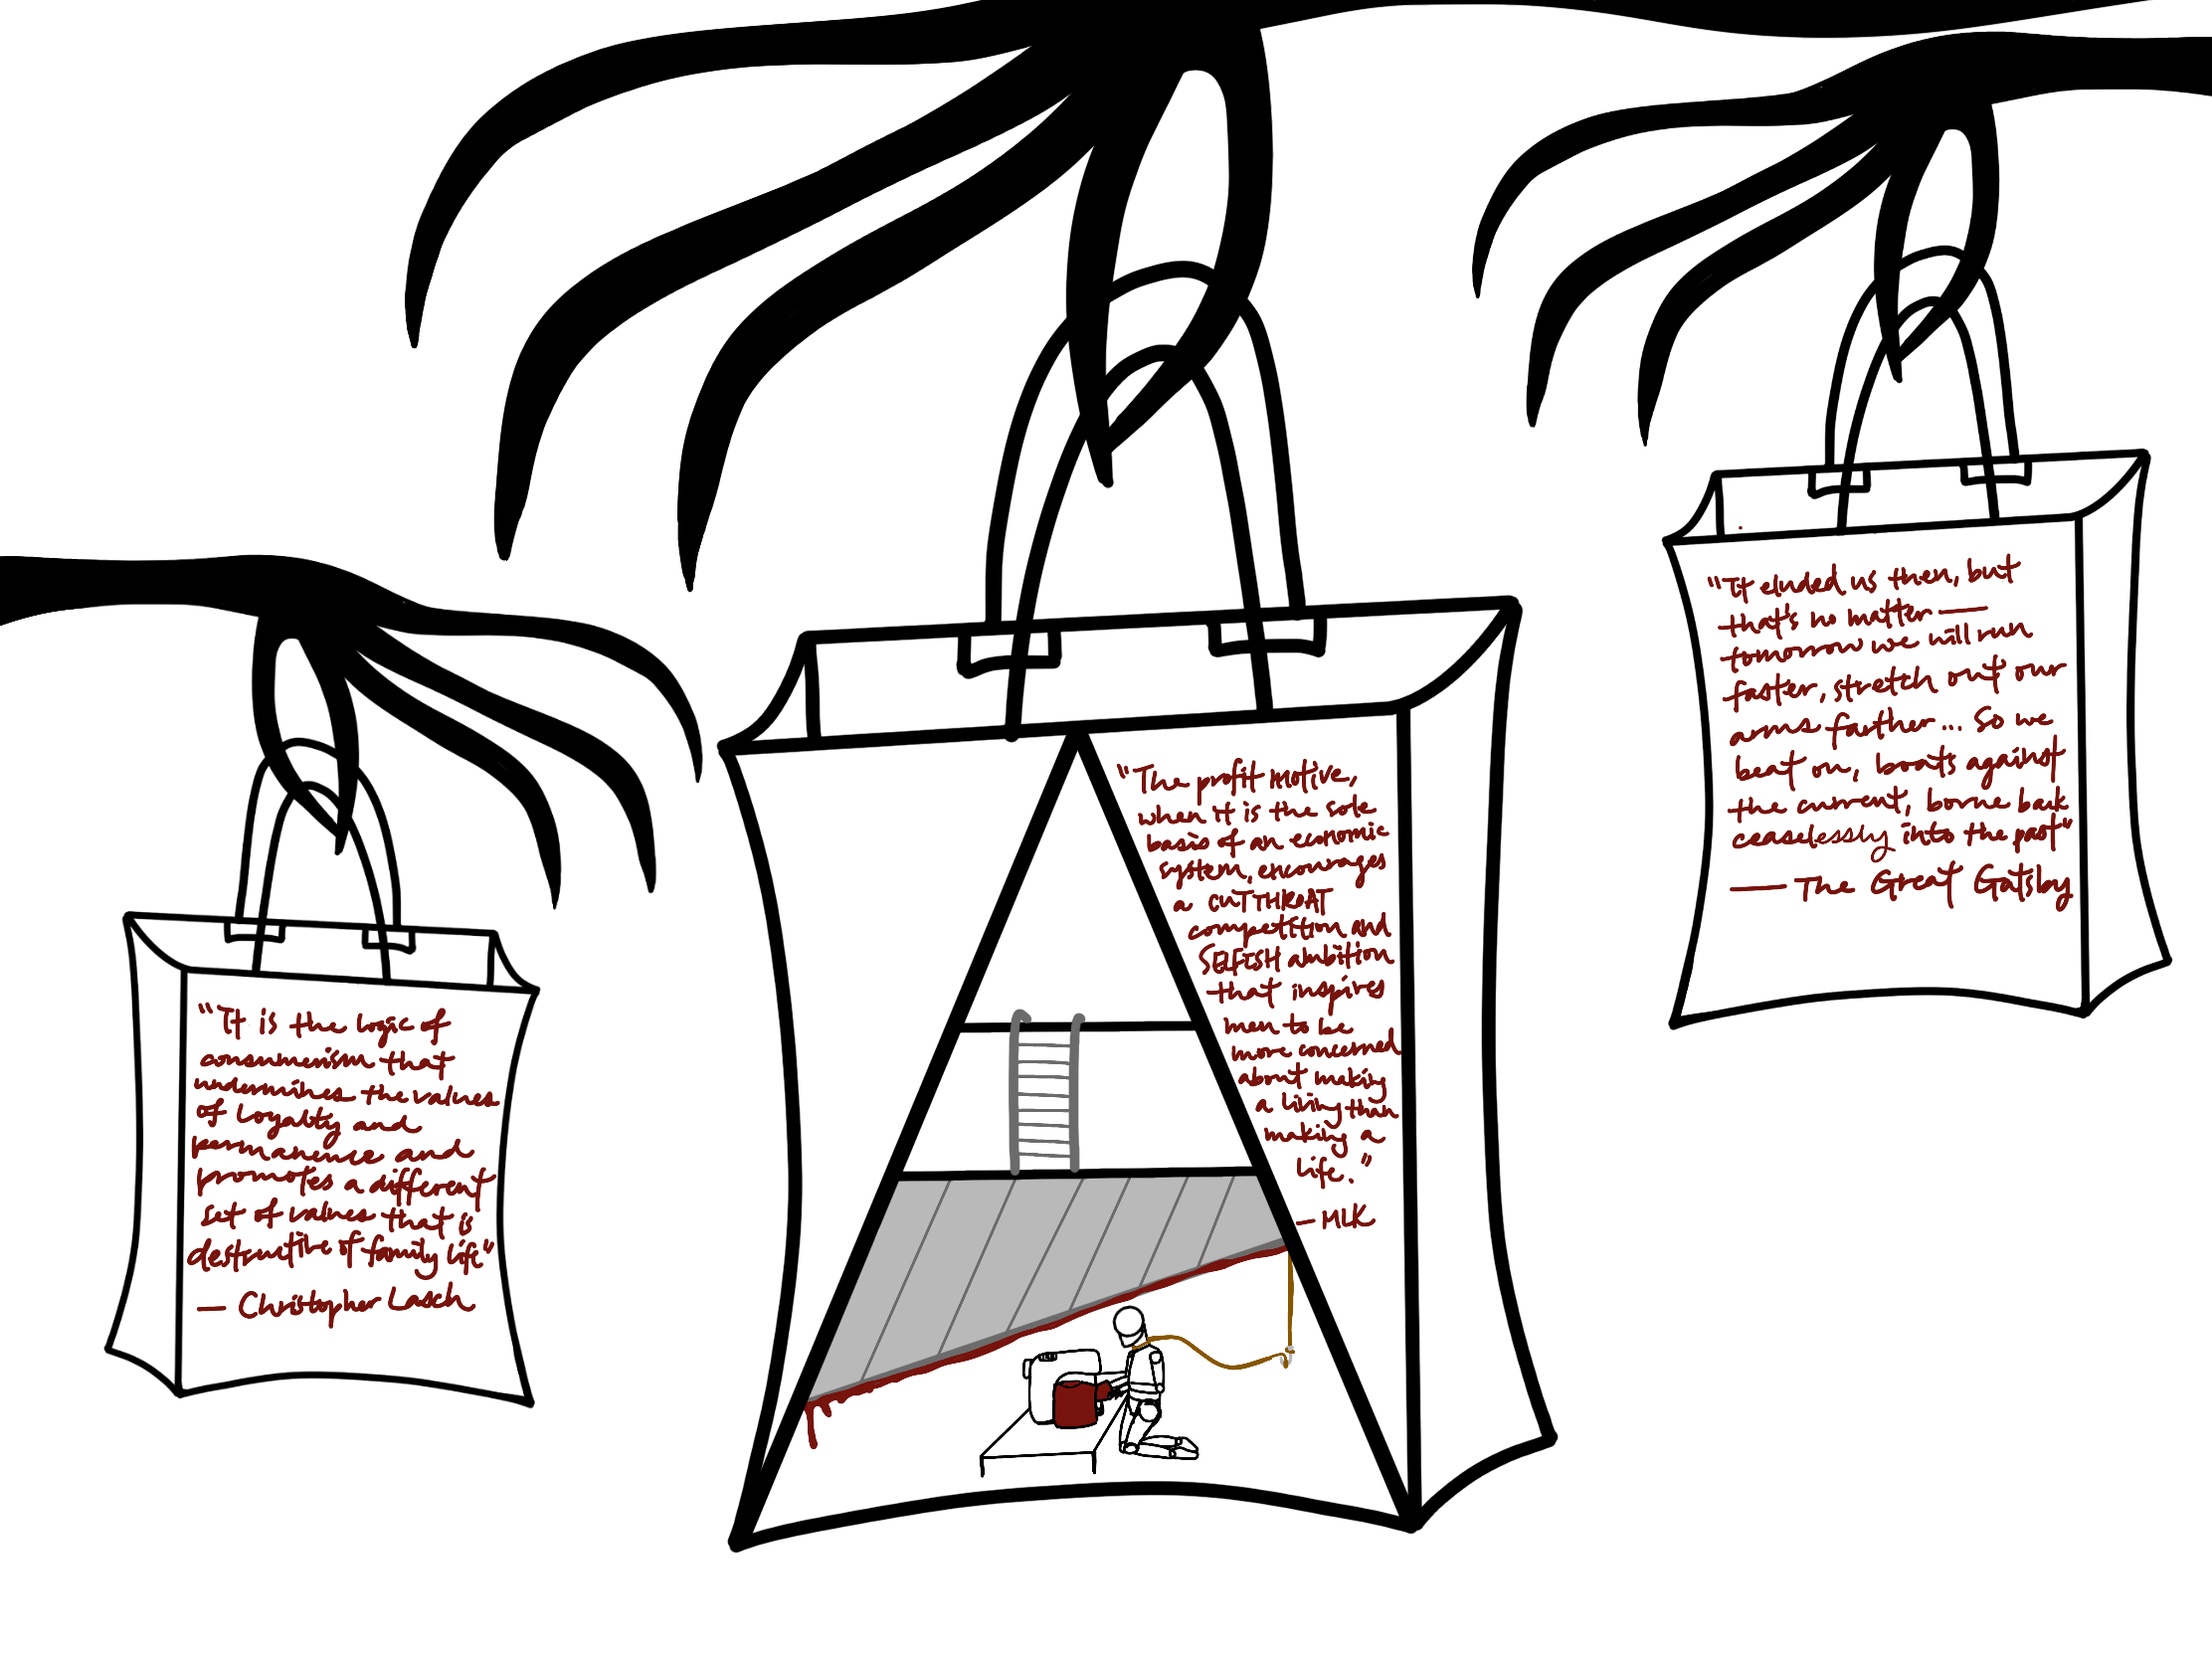 "It is the logic of
consumerism that
undermines the values
of loyalty and
permanence and
promotes a different
set of values that is
destructive of family life"
— Christopher Lasch
"The profit motive,
when it is the sole
basis of an economic
system, encourages
a CUTTHROAT
competition and
SELFISH ambition
that inspires
men to be
more concerned
about making
a living than
making a
life."
— MLK
"It eluded us then, but
that's no matter —
tomorrow we will run
faster, stretch out our
arms farther... So we
beat on, boats against
the current, borne back
ceaselessly into the past"
— The Great Gatsby